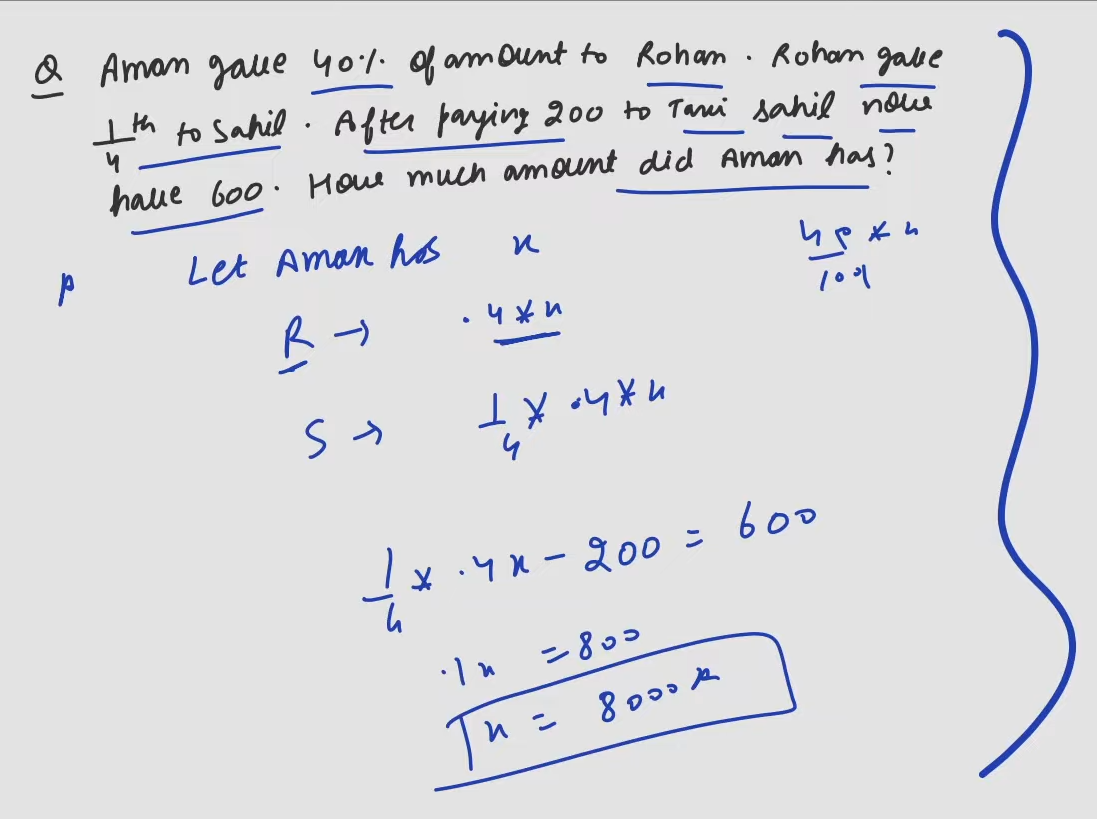 Q Aman gave 40% of amount to Rohan. Rohan gave
1/4th to Sahil. After paying 200 to Taxi sahil now
have 600. How much amount did Aman has?
Let Aman has x
40/100 * x
R → .4 * x
S → 1/4 * .4 * x
1/4 * .4x - 200 = 600
.1x = 800
x = 8000